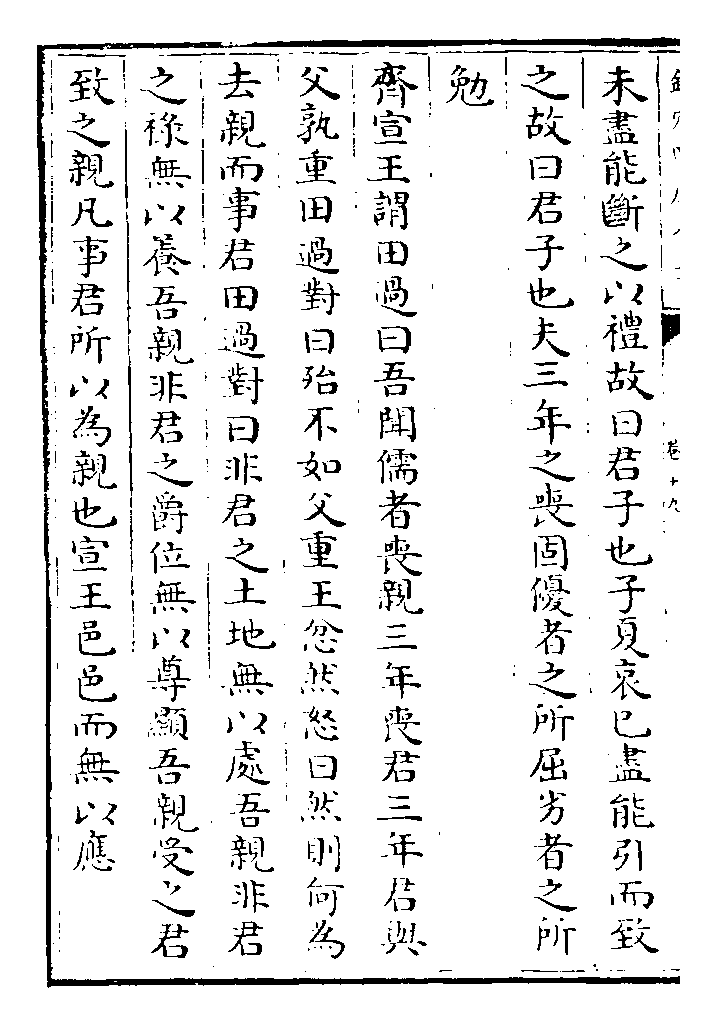 未盡能斷之以禮故曰君子也子夏哀已盡能引而致
之故曰君子也夫三年之喪固優者之所屈劣者之所
勉
齊宣王謂田過曰吾聞儒者喪親三年喪君三年君與
父孰重田過對曰殆不如父重王忿然怒曰然則何為
去親而事君田過對曰非君之土地無以處吾親非君
之祿無以養吾親非君之爵位無以尊顯吾親受之君
致之親凡事君所以為親也宣王邑邑而無以應
卷十九